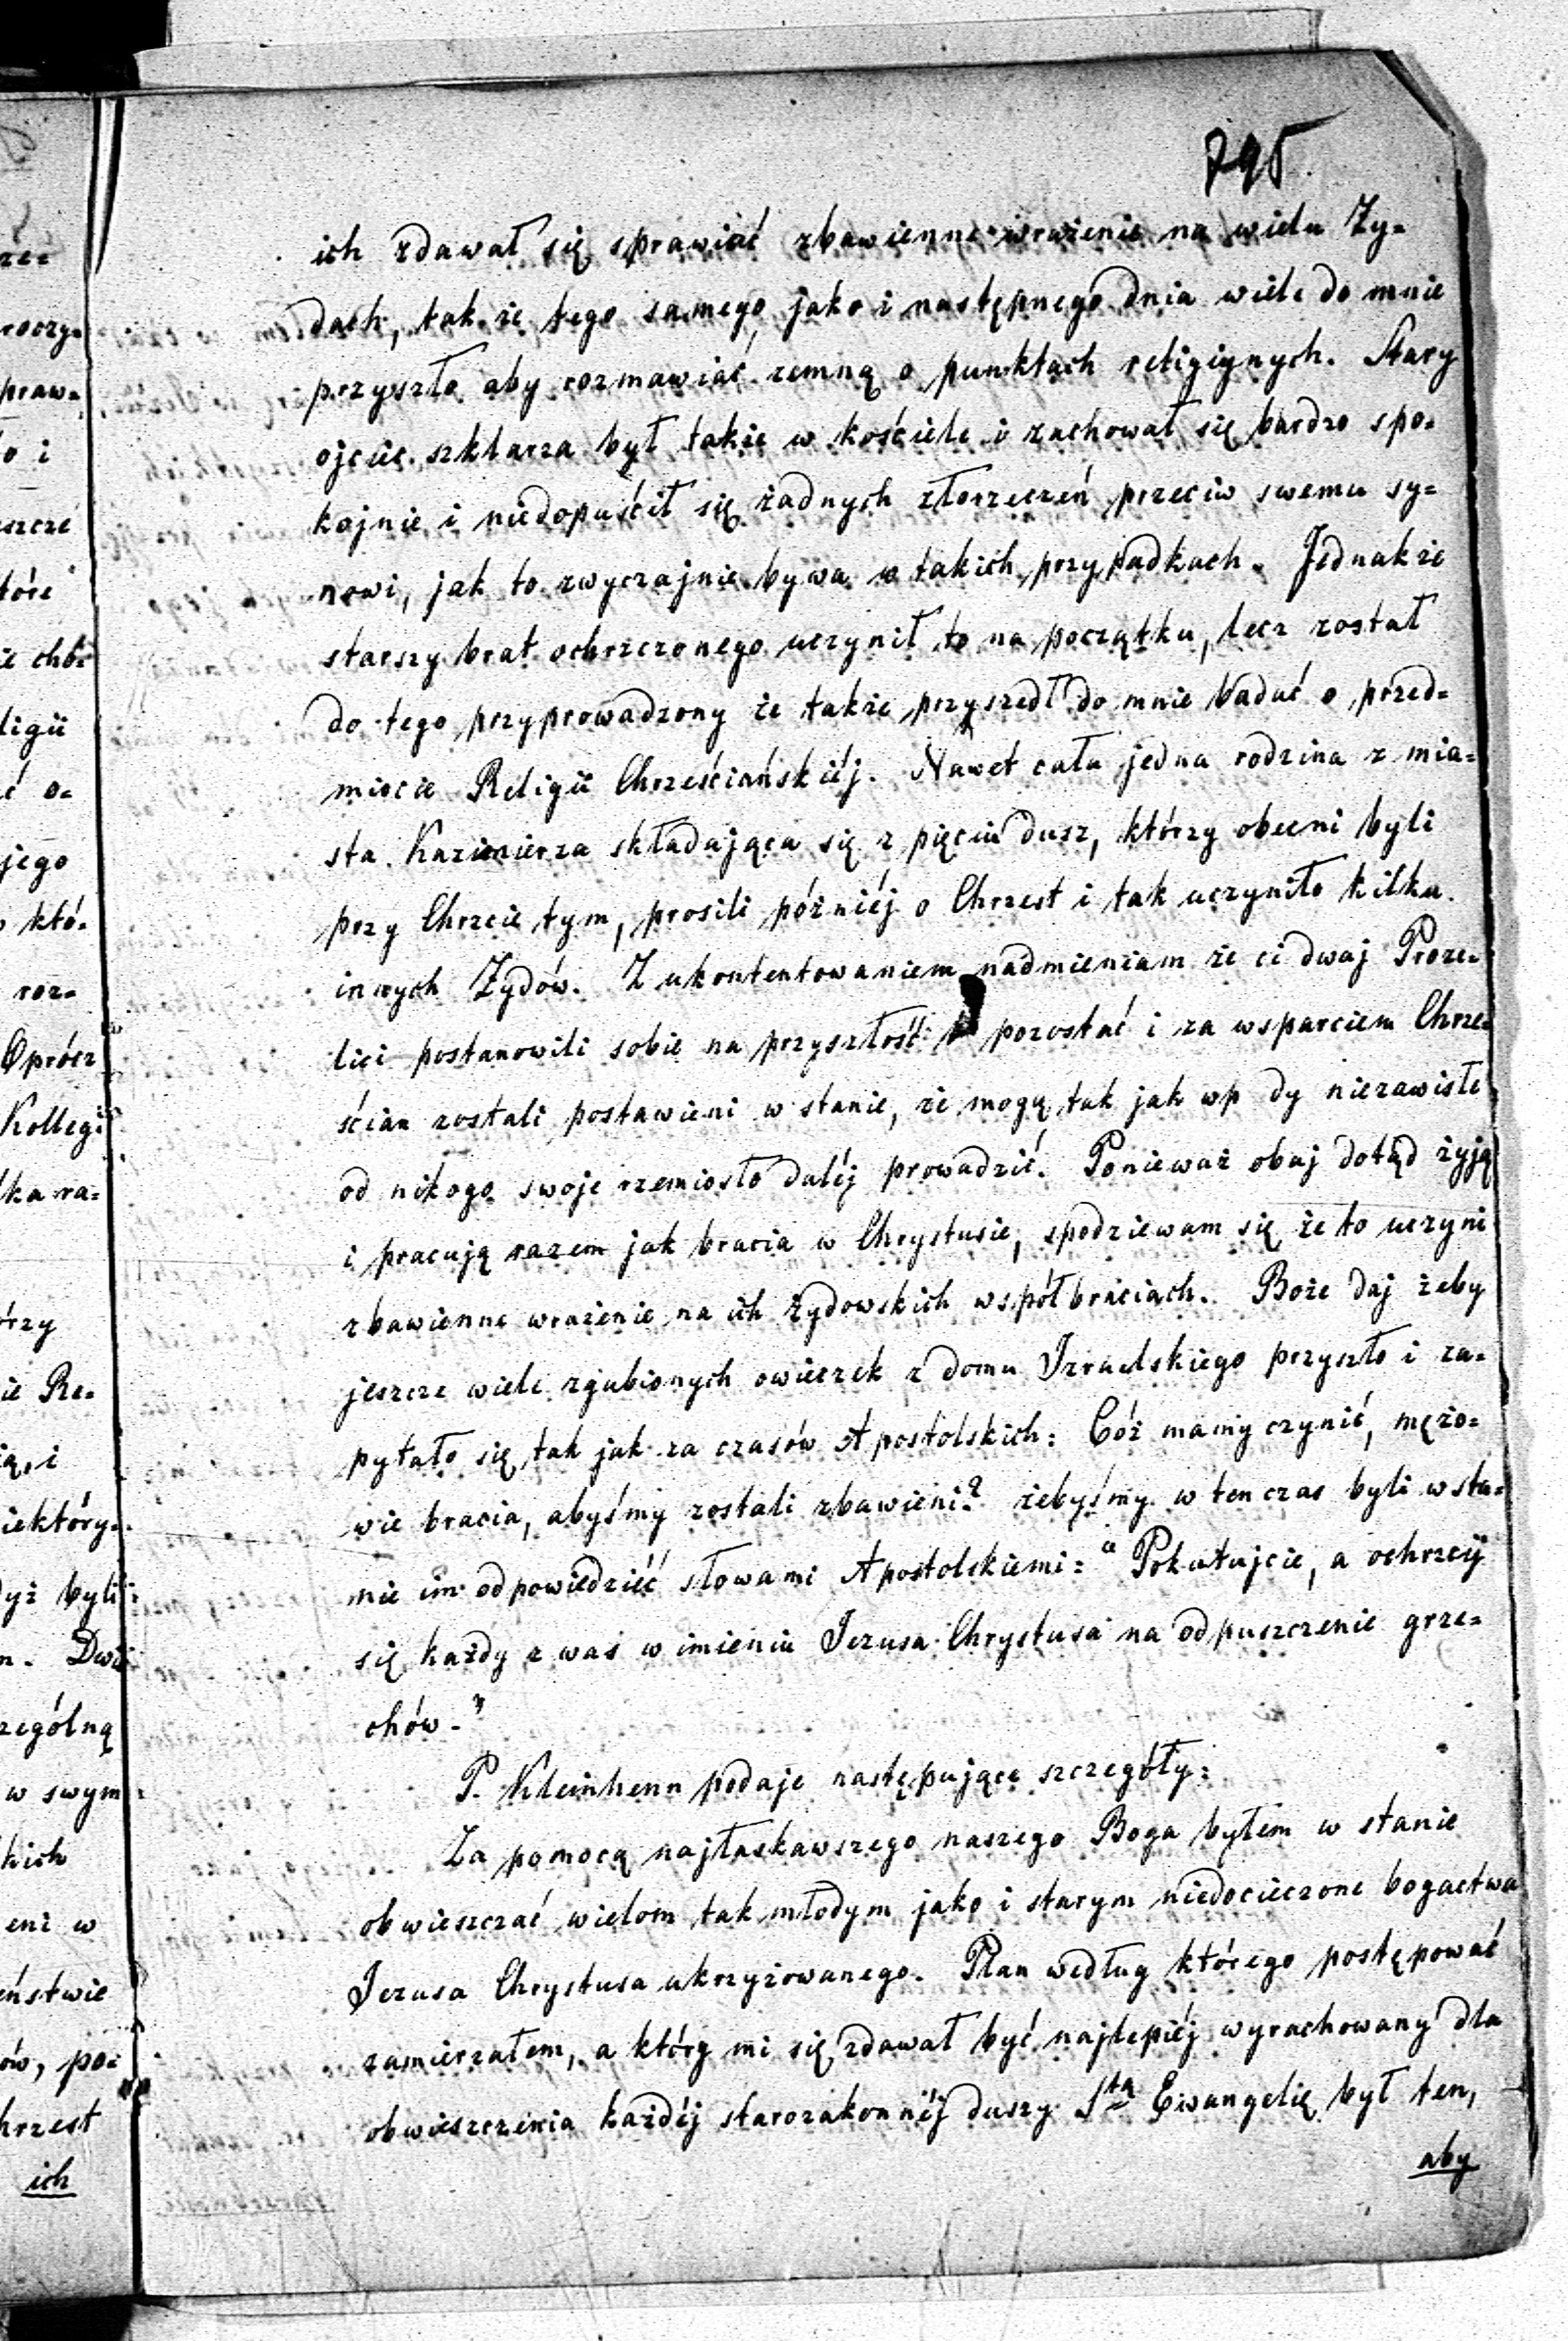 795
ich zdawał się sprawiać zbawienne wrażenie na wielu Ży=
dach, tak że tego samego, jako i następnego dnia wiele do mnie
przyszło aby rozmawiać zemną o punktach religiynych. Stary
ojciec szklarza był także w kościele i zachował się bardzo spo=
kojnie i niedopuścił się żadnych złorzeczeń przeciw swemu sy=
nowi, jak to zwyczajnie bywa w takich przypadkach. Jednakże
starszy brat ochrzczonego uczynił to na początku, lecz został
do tego przyprowadzony że także przyszedł do mnie badać o przed=
miocie Religii Chrześciańskiéj. Nawet cała jedna rodzina z mia=
sta Kazimierza składająca się z pięciu dusz, którzy obecni byli
przy Chrzcie tym, prosili późniéj o Chrzest i tak uczyniło kilku
innych Żydów. Z ukontentowaniem nadmieniam że ci dwaj Proze=
lici postanowili sobie na przyszłość pozostać i za wsparciem Chrze=
ścian zostali postawieni w stanie, że mogą tak jak wp dy niezawiśle
od nikogo swoje rzemiosło daléj prowadzić. Ponieważ obaj dotąd żyją
i pracują razem jak bracia w Chrystusie, spodziewam się że to uczyni
zbawienne wrażenie na ich żydowskich współbraciach. Boże daj żeby
jeszcze wiele zgubionych owieczek z domu Izraelskiego przyszło i za=
pytało się tak jak za czasów Apostolskich: Cóż mamy czynić, mężo=
wie bracia, abyśmy zostali zbawieni? żebyśmy w ten czas byli w sta=
nie im odpowiedzieć słowami Apostolskiemi: "Pokutujcie, a ochrzcij
się każdy z was w imieniu Jezusa Chrystusa na odpuszczenie grze=
chów."
P. Kleinhenn podaje następujące szczegóły:
Za pomocą najłaskawszego naszego Boga byłem w stanie
obwieszczać wielom tak młodym jako i starym niedocieczone bogactwa
Jezusa Chrystusa ukrzyżowanego. Plan według którego postępować
zamierzałem, a który mi się zdawał być najlepiéj wyrachowany dla
obwieszczenia każdéj starozakonnéj duszy Stą Ewangelię był ten,
aby